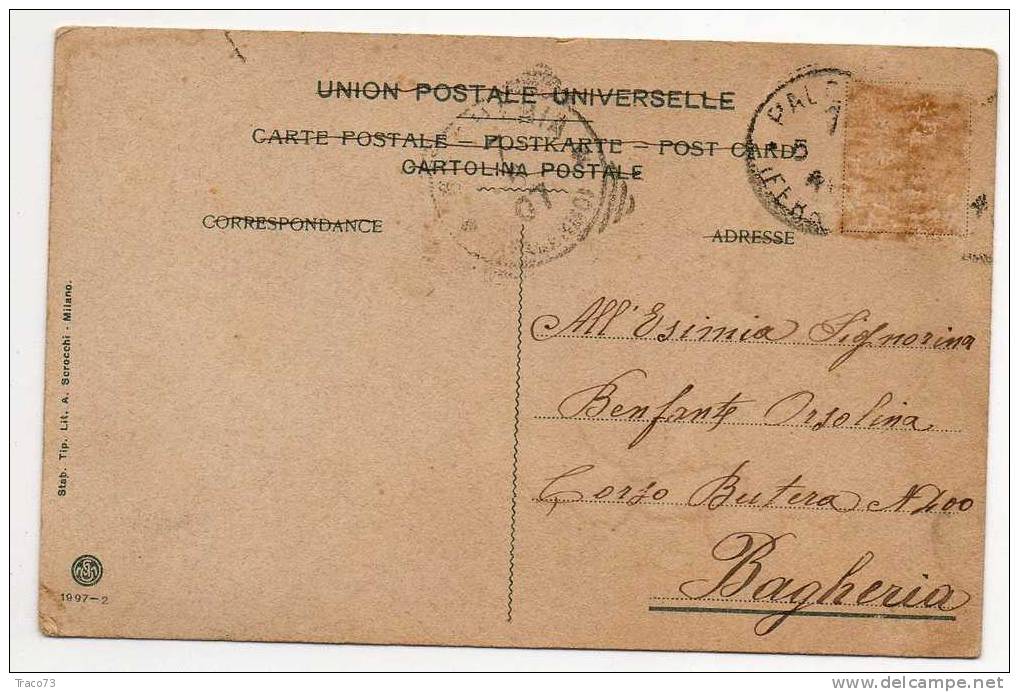 UNION POSTALE UNIVERSELLE
CARTE POSTALE – POSTKARTE – POST CARD
CARTOLINA POSTALE
CORRESPONDANCE
ADRESSE
PAL
5
(FERR
07
All'Esimia Signorina
Benfante Orsolina
Corso Butera N 400
Bagheria
Stab. Tip. Lit. A. Scrocchi - Milano.
1997-2
Traco73
delcampe.net